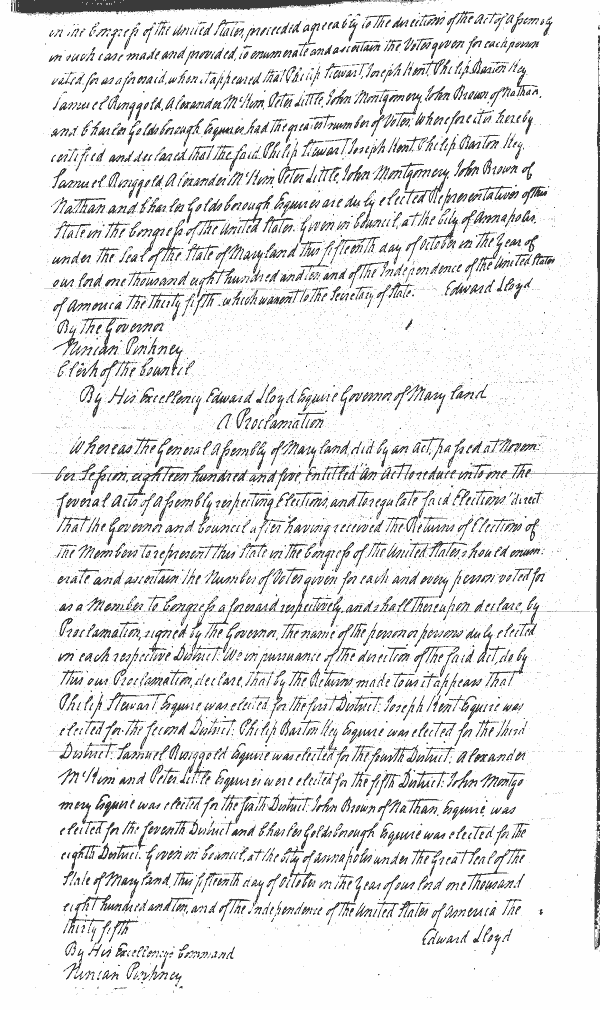 in the Congress of the United States, proceeded agreeably to the directions of the Act of Assembly
in such case made and provided, to enumerate and ascertain the Votes given for each person
voted for as aforesaid, when it appeared that Philip Stewart, Joseph Kent, Philip Barton Key
Samuel Ringgold, Alexander McKim, Peter Little, John Montgomery, John Brown of Nathan,
and Charles Goldsborough, Esquires, had the greatest number of Votes, Wherefore it is hereby
certified and declared that the said Philip Stewart, Joseph Kent, Philip Barton Key.
Samuel Ringgold, Alexander McKim, Peter Little, John Montgomery, John Brown of
Nathan and Charles Goldsborough Esquires are duly elected Representatives of this
State in the Congress of the United States. Given in Council, at the City of Annapolis,
under the Seal of the State of Maryland this fifteenth day of October in the Year of
our lord one thousand eight hundred and ten, and of the Independence of the United States
of America the thirty fifth. which was sent to the Secretary of State. Edward Lloyd
By the Governor
Ninian Pinkney
Clerk of the Council
By His Excellency Edward Lloyd Esquire Governor of Maryland
A Proclamation
Whereas the General Assembly of Maryland, did by an Act, passed at Novem-
ber Session, eighteen hundred and five, Entitled "An Act to reduce into one the
several Acts of Assembly respecting Elections, and to regulate said Elections" direct
that the Governor and Council after having received the Returns of Elections of
the Members to represent this State in the Congress of the United States, should enum-
erate and ascertain the Number of Votes given for each and every person voted for
as a Member to Congress aforesaid respectively, and shall thereupon declare, by
Proclamation, signed by the Governor, the name of the person or persons duly elected
in each respective District. We in pursuance of the direction of the said Act, do by
this our Proclamation, declare, that by the Returns made to us it appears that
Philip Stewart Esquire was elected for the first District. Joseph Kent Esquire was
elected for the second District. Philip Barton Key Esquire was elected for the third
District. Samuel Ringgold Esquire was elected for the fourth District. Alexander
McKim and Peter Little Esquires were elected for the fifth District. John Montgo
mery Esquire was elected for the sixth District. John Brown of Nathan, Esquire, was
elected for the seventh District and Charles Goldsborough Esquire was elected for the
eighth District. Given in Council at the City of Annapolis under the Great Seal of the
State of Maryland, this fifteenth day of October in the Year of our lord one thousand
eight hundred and ten, and of the Independence of the United States of America the
thirty fifth Edward Lloyd
By His Excellency's Command
Ninian Pinkney